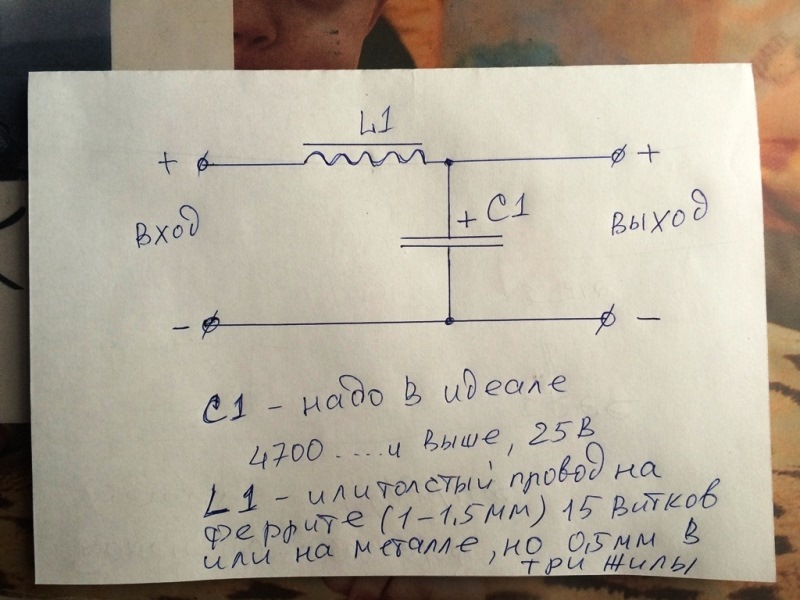 L1
+ +
+ C1
вход выход
- -
C1 - надо в идеале
4700 .... и выше, 25В
L1 - или толстый провод на
феррите (1-1,5мм) 15 витков
или на металле, но 0,5мм в
три жилы